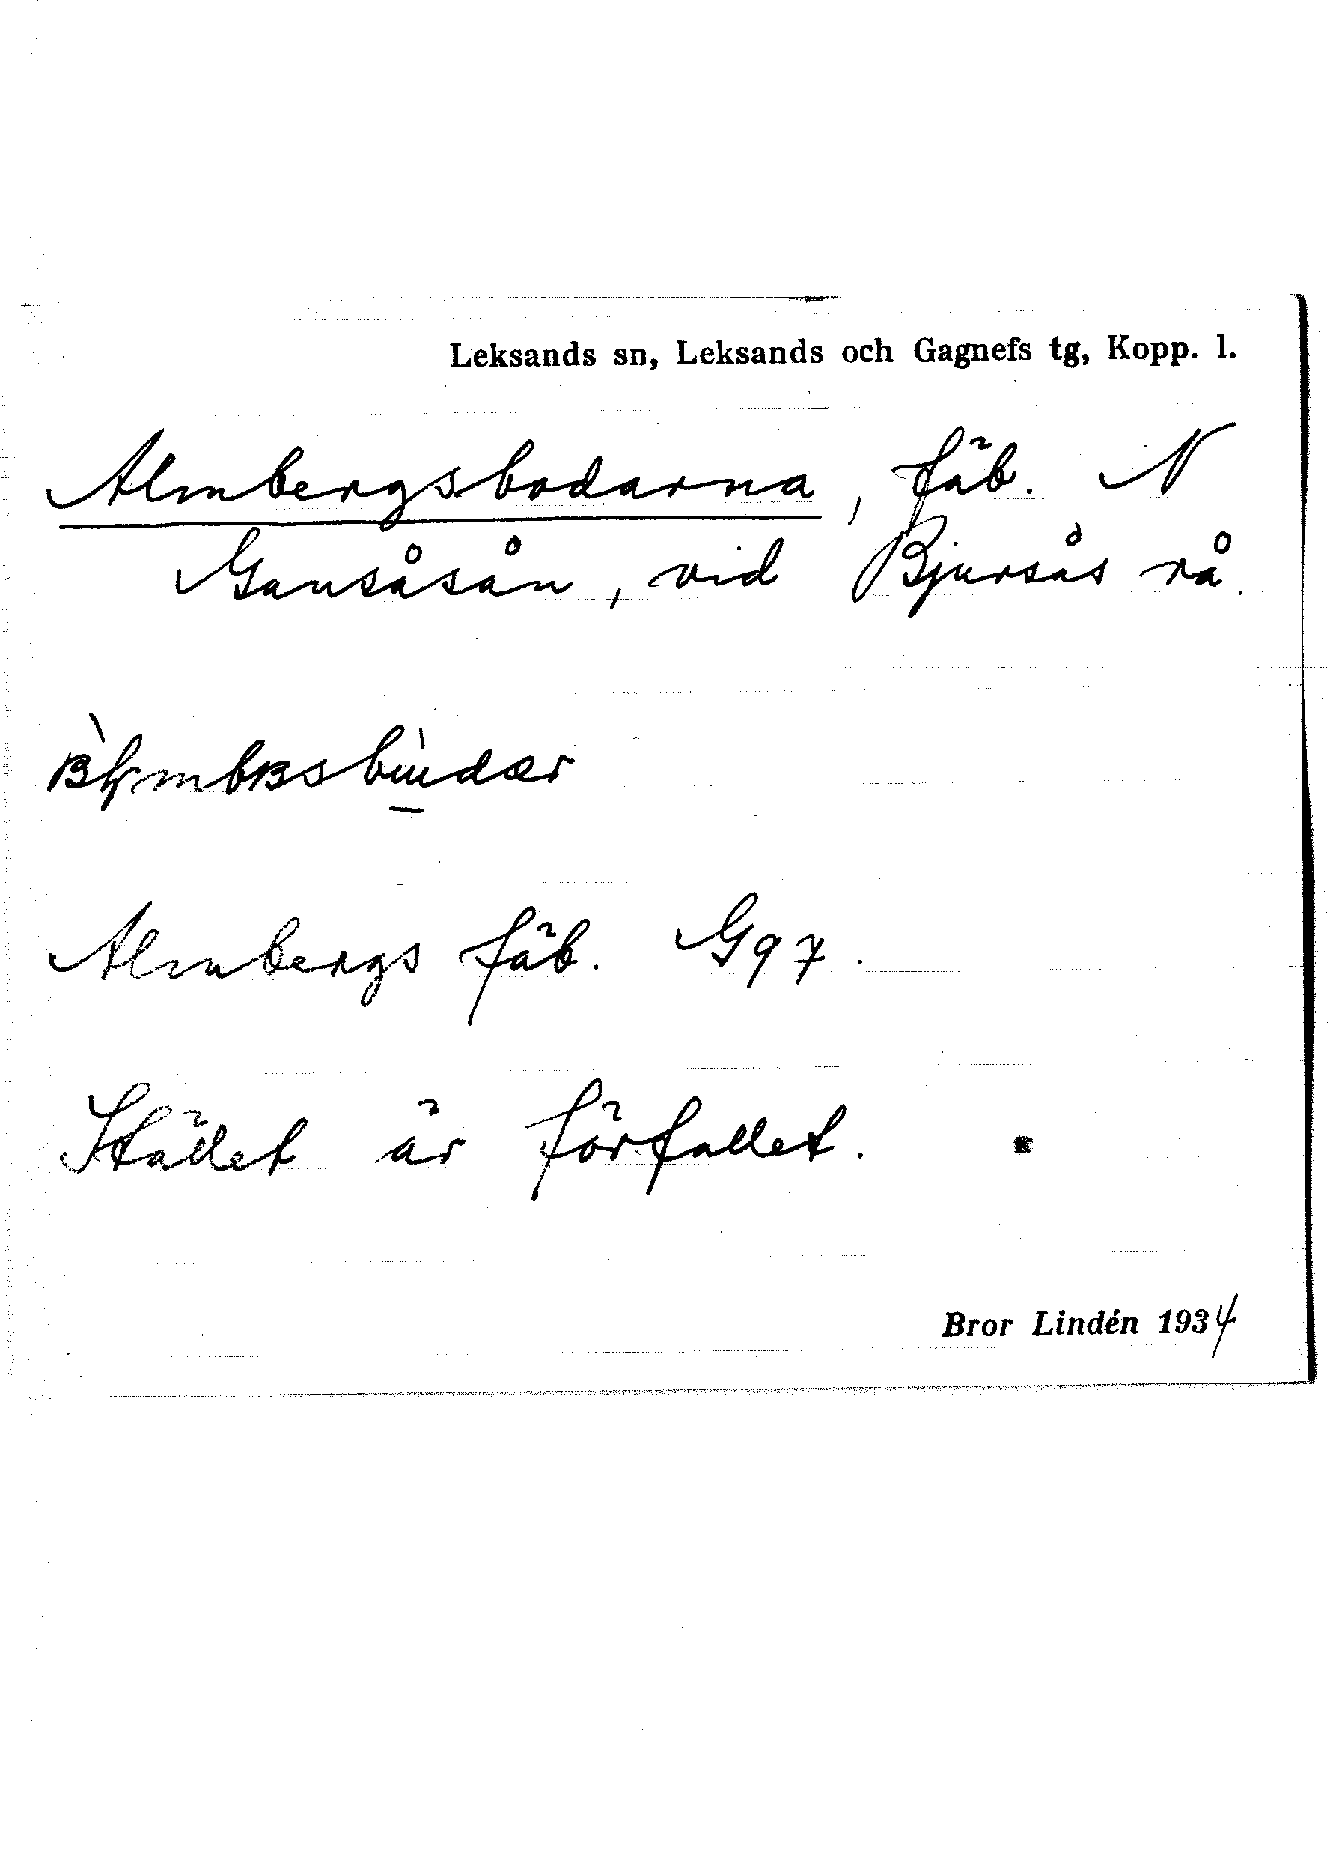 Leksands sn, Leksands och Gagnefs tg, Kopp. l.
Almbergsbodarna, fäb. N
Gansåsån, vid Bjursås rå.
Almbergs fäb. G97.
Stället är förfallet.
Bror Lindén 1934